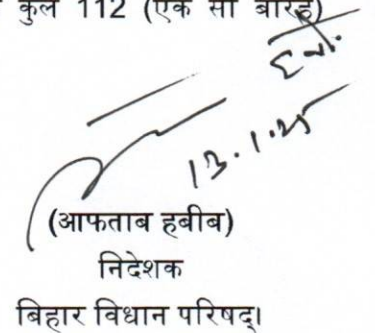 कुल 112 (एक सौ बारह)
ह०/-
13.1.25
(आफताब हबीब)
निदेशक
बिहार विधान परिषद्।